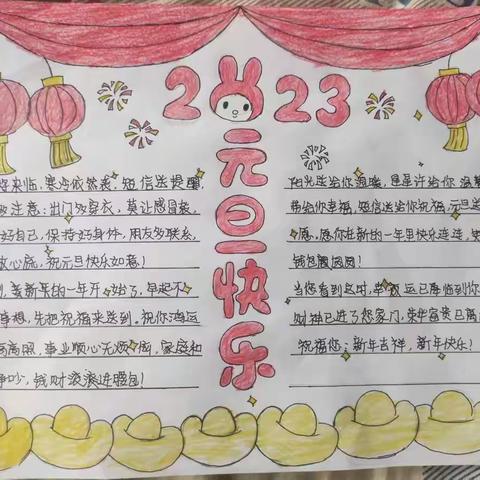 2023
元旦快乐
来临，寒冷依然袭．短信送提醒，
注意：出门多穿衣，莫让感冒袭，
好自己，保持好身体，朋友多联系，
心底，祝元旦快乐如意！
新的一年开始了，早起不
事想，先把祝福来送到．祝你鸿运
高照，事业顺心无烦恼，家庭和
争吵，钱财滚滚进腰包！
阳光送给你温暖，星星许给你
带给你幸福，短信送给你祝福，元旦送
愿，愿你在新的一年里快乐连连，
钱包圆圆！
当您看到这时，幸运已降临到你
财神已进了您家门，荣华富贵已离
祝福您：新年吉祥，新年快乐！